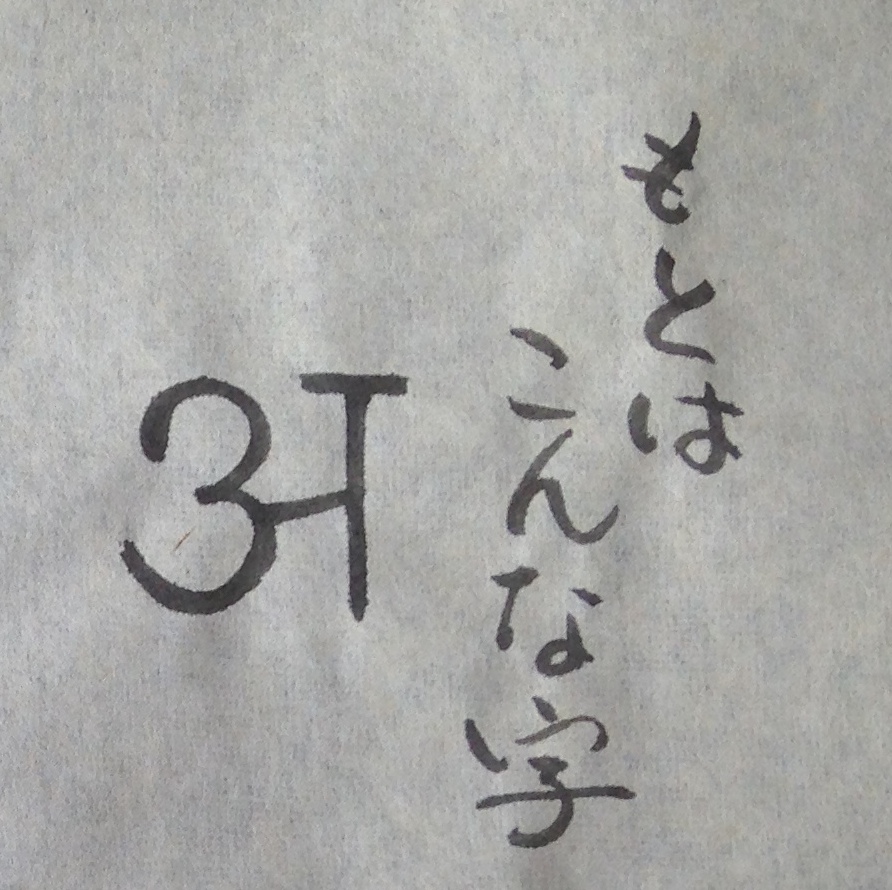 もとは
こんな字
अ